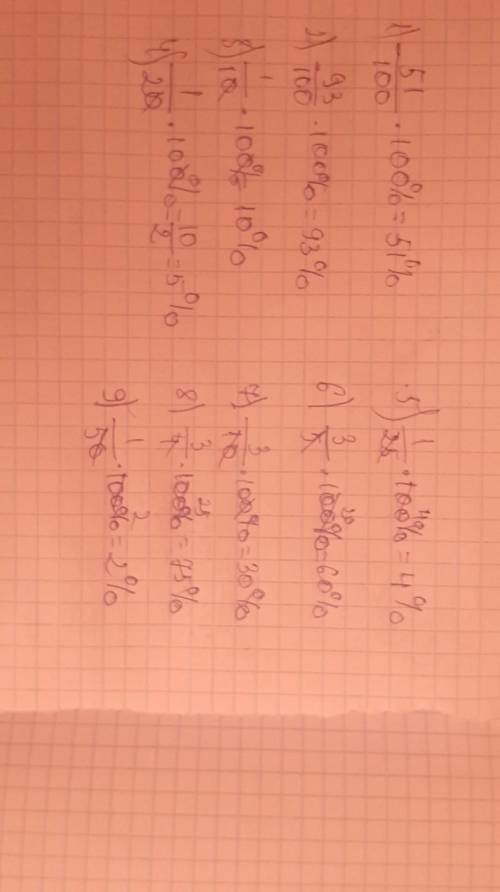 1) 51/100 · 100% = 51%
2) 93/100 · 100% = 93%
3) 1/10 · 100% = 10%
4) 1/20 · 100% = 10/2 = 5%
5) 1/25 · 100% 4 = 4%
6) 3/5 · 100% 20 = 60%
7) 3/10 · 100% = 30%
8) 3/4 · 100% 25 = 75%
9) 1/50 · 100% 2 = 2%